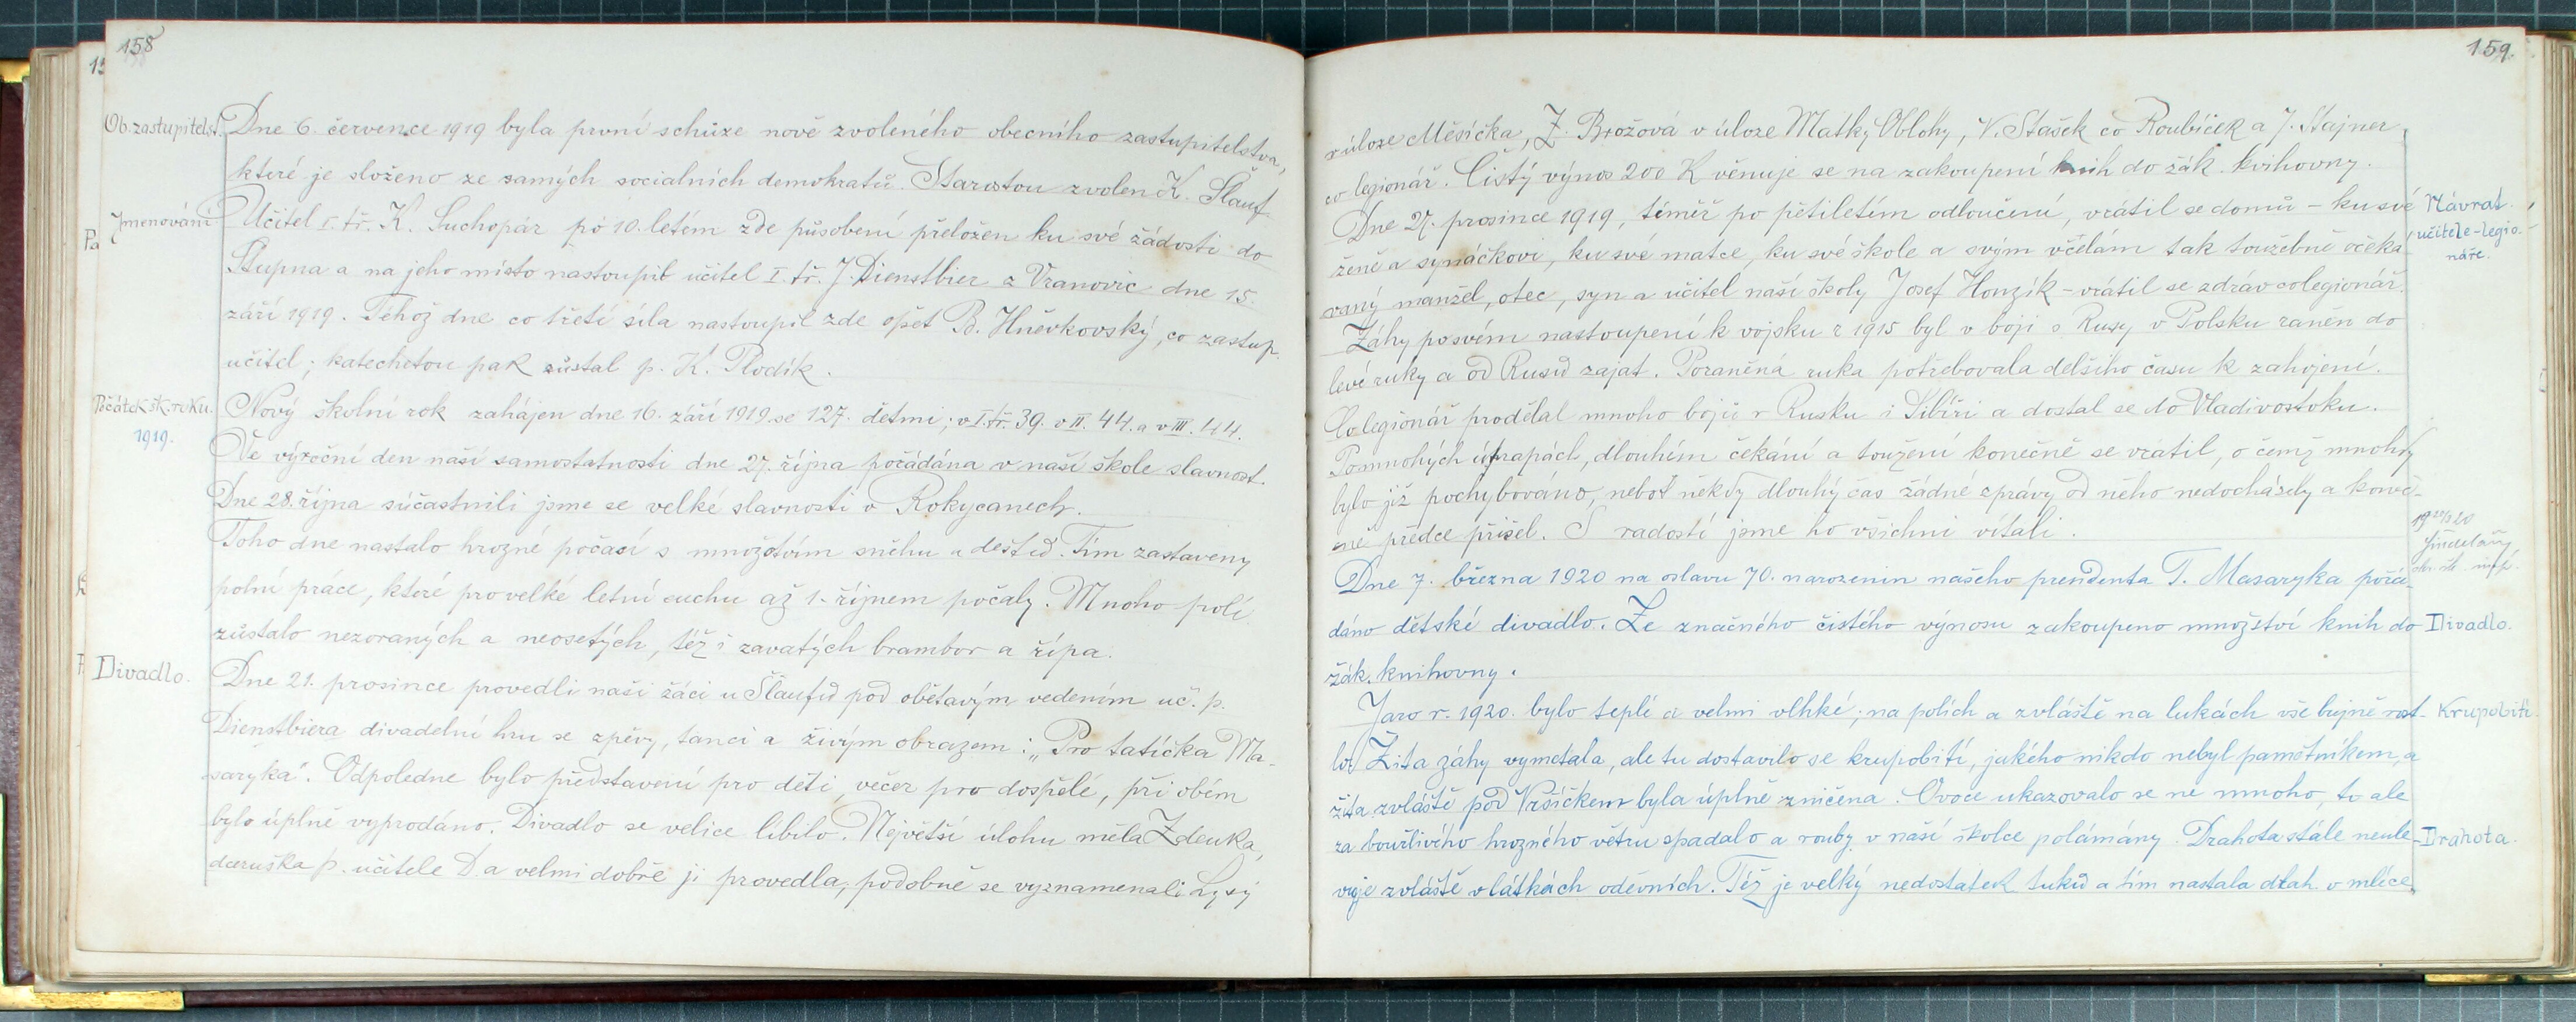 158
Ob. zastupitelst.
Dne 6. července 1919 byla první schůze nově zvoleného obecního zastupitelstva,
které je složeno ze samých socialních demokratů. Starostou zvolen K. Šlauf.
Jmenování
Učitel I. tř. K. Suchopár po 10. letém zde působení přeložen ku své žádosti do
Stupna a na jeho místo nastoupil učitel I. tř. J. Dienstbier z Vranovic dne 15.
září 1919. Téhož dne co třetí síla nastoupil zde opět B. Hněvkovský, co zastup.
učitel; katechetou pak zůstal p. K. Plodík.
Počátek šk. roku.
1919.
Nový školní rok zahájen dne 16. září 1919. se 127. dětmi; v I. tř. 39. v II. 44. a v III. 44.
Ve výroční den naší samostatnosti dne 27. října pořádána v naší škole slavnost.
Dne 28. října súčastnili jsme se velké slavnosti v Rokycanech.
Toho dne nastalo hrozné počasí s množstvím sněhu a deštů. Tím zastaveny
polní práce, které pro velké letní suchu až 1. říjnem počaly. Mnoho polí
zůstalo nezoraných a neosetých, též i zavatých brambor a řípa.
Divadlo.
Dne 21. prosince provedli naši žáci u Šlaufů pod obětavým vedením uč. p.
Dienstbiera divadelní hru se zpěvy, tanci a živým obrazem: „Pro tatíčka Ma-
saryka". Odpoledne bylo představení pro děti, večer pro dospělé, při obém
bylo úplně vyprodáno. Divadlo se velice líbilo. Největší úlohu měla Zdenka,
dceruška p. učitele D. a velmi dobře ji provedla, podobně se vyznamenali Lysý
159.
v úloze Měsíčka, Z. Brožová v úloze Matky Oblohy, V. Stašek co Roubíček a J. Stajner
co legionář. Čistý výnos 200 K věnuje se na zakoupení knih do žák. knihovny.
Dne 27. prosince 1919, téměř po pětiletém odloučení, vrátil se domů – ku své
Návrat
učitele-legio-
náře.
ženě a synáčkovi, ku své matce, ku své škole a svým včelám tak toužebně očeká-
vaný manžel, otec, syn a učitel naší školy Josef Honzík – vrátil se zdráv co legionář.
Záhy po svém nastoupení k vojsku r 1915 byl v boji s Rusy v Polsku raněn do
levé ruky a od Rusů zajat. Poraněná ruka potřebovala delšího času k zahojení.
Co legionář prodělal mnoho bojů v Rusku i Sibíři a dostal se do Vladivostoku.
Po mnohých útrapách, dlouhém čekání a toužení konečně se vrátil, o čemž mnohdy
bylo již pochybováno, neboť někdy dlouhý čas žádné zprávy od něho nedocházely a koneč-
ně předce přišel. S radostí jsme ho všichni vítali.
Dne 7. března 1920 na oslavu 70. narozenin našeho presidenta T. Masaryka pořá-
dáno dětské divadlo. Ze značného čistého výnosu zakoupeno množství knih do
Divadlo.
žák. knihovny.
Jaro r. 1920. bylo teplé a velmi vlhké; na polích a zvláště na lukách vše bujně rost-
Krupobití.
lo. Žita záhy vymetala, ale tu dostavilo se krupobití, jakého nikdo nebyl pamětníkem, a
žita zvláště pod Vršíčkem byla úplně zničena. Ovoce ukazovalo se ne mnoho, to ale
za bouřlivého hrozného větru spadalo a rouby v naší školce polámány. Drahota stále neule-
Drahota.
vuje zvláště v látkách oděvních. Též je velký nedostatek tuků a tím nastala drah. v mléce,